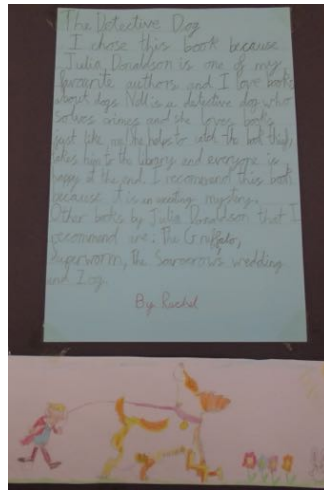 The Detective Dog
I chose this book because
Julia Donaldson is one of my
favourite authors and I love books
about dogs. Nell is a detective dog who
solves crimes and she loves books
just like me! She helps to catch the book thief,
takes him to the library and everyone is
happy at the end. I recommend this book
because it is an exciting mystery.
Other books by Julia Donaldson that I
recommend are: The Gruffalo,
Superworm, The Scarecrow's wedding
and Zog.
By Rachel